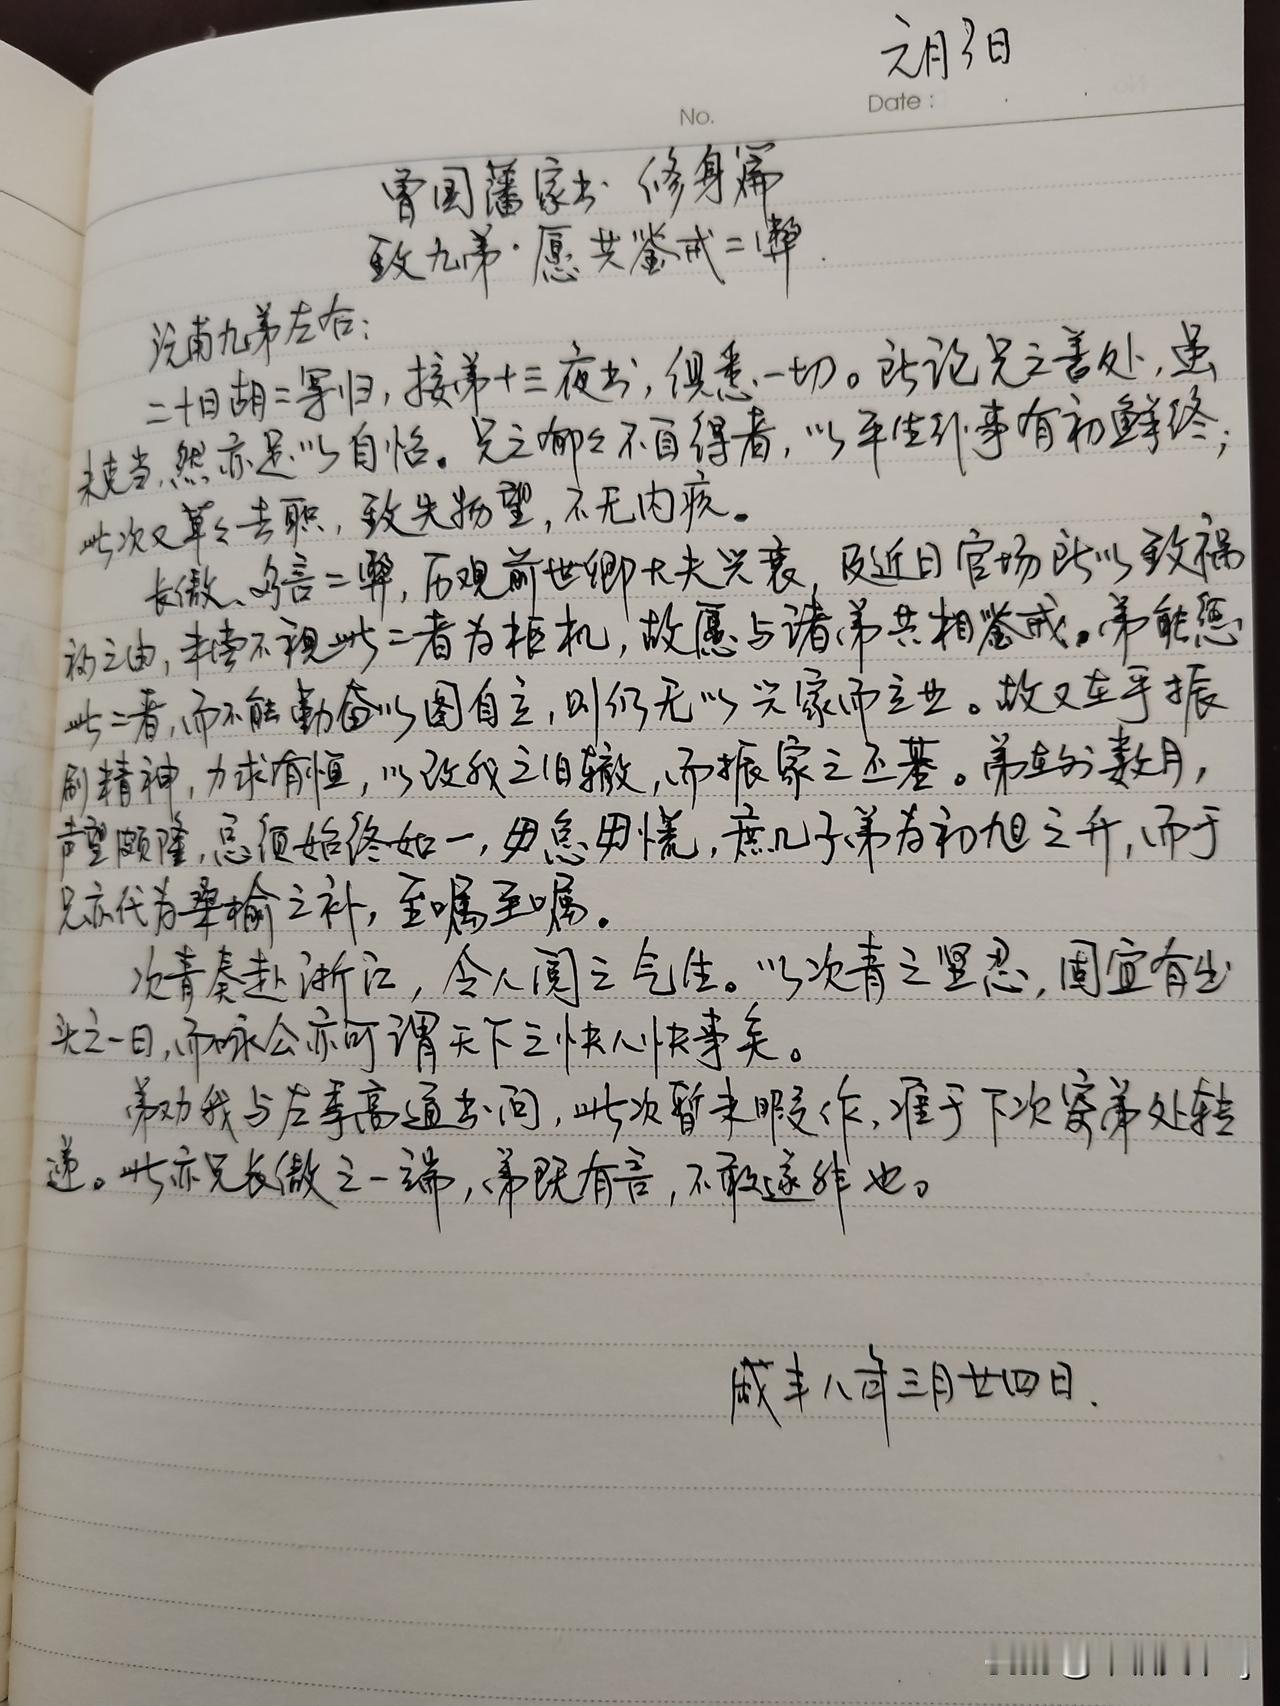 元月3日
No.
Date:
曾国藩家书 修身篇
致九弟·愿共鉴戒二弊.
沅甫九弟左右：
二十日胡二等归，接弟十三夜书，俱悉一切。所论兄之善处，虽
未克当，然亦足以自怡。兄之郁々不自得者，以平生行事有初鲜终；
此次又草々去职，致失物望，不无内疚。
长傲、多言二弊，历观前世卿大夫兴衰，及近日官场所以致祸
福之由，未尝不视此二者为枢机，故愿与诸弟共相鉴戒。弟能惩
此二者，而不能勤奋以图自立，则仍无以兴家而立业。故又在乎振
刷精神，力求有恒，以改我之旧辙，而振家之丕基。弟在外数月，
声望颇隆，总须始终如一，毋怠毋慌，庶几子弟为初旭之升，而于
兄亦代为桑榆之补，至嘱至嘱。
次青奏赴浙江，令人阅之气生。以次青之坚忍，固宜有出
头之一日，而咏公亦可谓天下之快人快事矣。
弟劝我与左季高通书问，此次暂未暇作，准于下次寄弟处转
递。此亦兄长傲之一端，弟既有言，不敢遂非也。
咸丰八年三月廿四日.